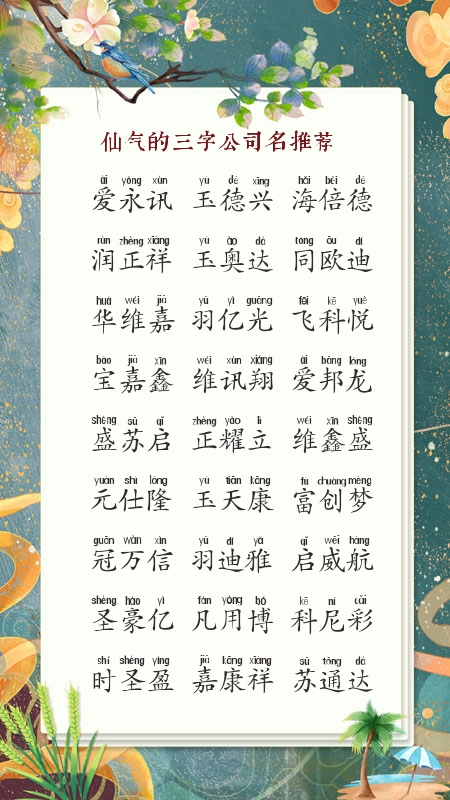 仙气的三字公司名推荐
ài yóng xùn yù dé xīng hǎi bèi dé
爱永讯 玉德兴 海倍德
rùn zhèng xiáng yù ào dá tóng ōu dí
润正祥 玉奥达 同欧迪
huá wéi jiā yǔ yì guāng fēi kē yuè
华维嘉 羽亿光 飞科悦
bǎo jiā xīn wéi xùn xiáng ài bāng lóng
宝嘉鑫 维讯翔 爱邦龙
shèng sū qǐ zhèng yào lì wéi xīn shèng
盛苏启 正耀立 维鑫盛
yuán shì lóng yù tiān kāng fù chuàng mèng
元仕隆 玉天康 富创梦
guān wàn xìn yǔ dí yǎ qǐ wēi háng
冠万信 羽迪雅 启威航
shèng háo yì fán yòng bó kē ní cǎi
圣豪亿 凡用博 科尼彩
shí shèng yíng jiā kāng xiáng sū tōng dá
时圣盈 嘉康祥 苏通达